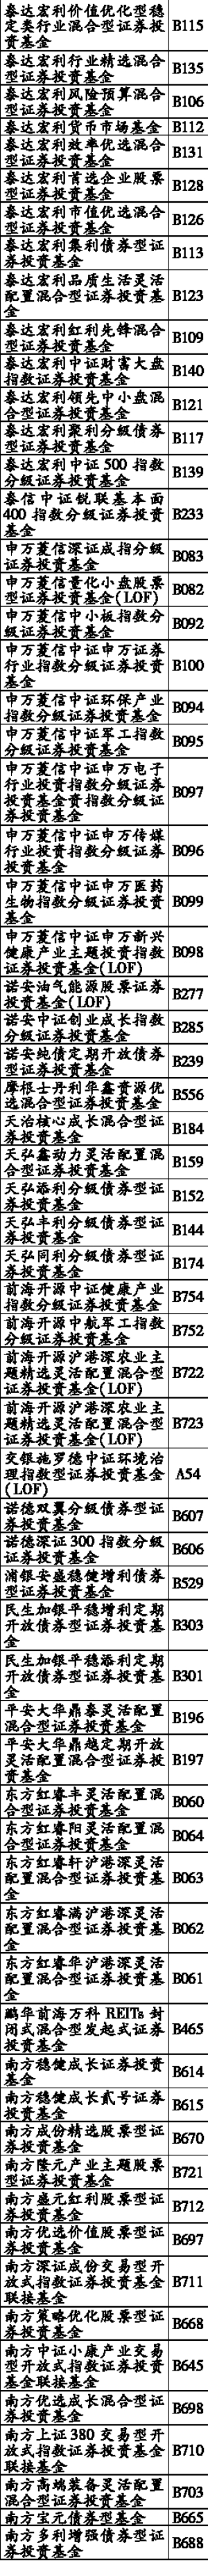 泰达宏利价值优化型稳
定类行业混合型证券投
资基金
B115
泰达宏利行业精选混合
型证券投资基金
B135
泰达宏利风险预算混合
型证券投资基金
B106
泰达宏利货币市场基金 B112
泰达宏利效率优选混合
型证券投资基金
B131
泰达宏利首选企业股票
型证券投资基金
B128
泰达宏利市值优选混合
型证券投资基金
B126
泰达宏利集利债券型证
券投资基金
B113
泰达宏利品质生活灵活
配置混合型证券投资基
金
B123
泰达宏利红利先锋混合
型证券投资基金
B109
泰达宏利中证财富大盘
指数证券投资基金
B140
泰达宏利领先中小盘混
合型证券投资基金
B121
泰达宏利聚利分级债券
型证券投资基金
B117
泰达宏利中证 500 指数
分级证券投资基金
B139
泰信中证锐联基本面
400 指数分级证券投资
基金
B233
申万菱信深证成指分级
证券投资基金
B083
申万菱信量化小盘股票
型证券投资基金(LOF)
B082
申万菱信中小板指数分
级证券投资基金
B092
申万菱信中证申万证券
行业指数分级证券投资
基金
B100
申万菱信中证环保产业
指数分级证券投资基金
B094
申万菱信中证军工指数
分级证券投资基金
B095
申万菱信中证申万电子
行业投资指数分级证券
投资基金资指数分级证
券投资基金
B097
申万菱信中证申万传媒
行业投资指数分级证券
投资基金
B096
申万菱信中证申万医药
生物指数分级证券投资
基金
B099
申万菱信中证申万新兴
健康产业主题投资指数
证券投资基金(LOF)
B098
诺安油气能源股票证券
投资基金(LOF)
B277
诺安中证创业成长指数
分级证券投资基金
B285
诺安纯债定期开放债券
型证券投资基金
B239
摩根士丹利华鑫资源优
选混合型证券投资基金
B556
天治核心成长混合型证
券投资基金
B184
天弘鑫动力灵活配置混
合型证券投资基金
B159
天弘添利分级债券型证
券投资基金
B152
天弘丰利分级债券型证
券投资基金
B144
天弘同利分级债券型证
券投资基金
B174
前海开源中证健康产业
指数分级证券投资基金
B754
前海开源中航军工指数
分级证券投资基金
B752
前海开源沪港深农业主
题精选灵活配置混合型
证券投资基金(LOF)
B722
前海开源沪港深农业主
题精选灵活配置混合型
证券投资基金(LOF)
B723
交银施罗德中证环境治
理指数型证券投资基金
(LOF)
A54
诺德双翼分级债券型证
券投资基金
B607
诺德深证 300 指数分级
证券投资基金
B606
浦银安盛稳健增利债券
型证券投资基金
B529
民生加银平稳增利定期
开放债券型证券投资基
金
B303
民生加银平稳添利定期
开放债券型证券投资基
金
B301
平安大华鼎泰灵活配置
混合型证券投资基金
B196
平安大华鼎越定期开放
灵活配置混合型证券投
资基金
B197
东方红睿丰灵活配置混
合型证券投资基金
B060
东方红睿阳灵活配置混
合型证券投资基金
B064
东方红睿轩沪港深灵活
配置混合型证券投资基
金
B063
东方红睿满沪港深灵活
配置混合型证券投资基
金
B062
东方红睿华沪港深灵活
配置混合型证券投资基
金
B061
鹏华前海万科 REITs 封
闭式混合型发起式证券
投资基金
B465
南方稳健成长证券投资
基金
B614
南方稳健成长贰号证券
投资基金
B615
南方成份精选股票型证
券投资基金
B670
南方隆元产业主题股票
型证券投资基金
B721
南方盛元红利股票型证
券投资基金
B712
南方优选价值股票型证
券投资基金
B697
南方深证成份交易型开
放式指数证券投资基金
联接基金
B711
南方策略优化股票型证
券投资基金
B668
南方中证小康产业交易
型开放式指数证券投资
基金联接基金
B645
南方优选成长混合型证
券投资基金
B698
南方上证 380 交易型开
放式指数证券投资基金
联接基金
B710
南方高端装备灵活配置
混合型证券投资基金
B703
南方宝元债券型基金 B665
南方多利增强债券型证
券投资基金
B688